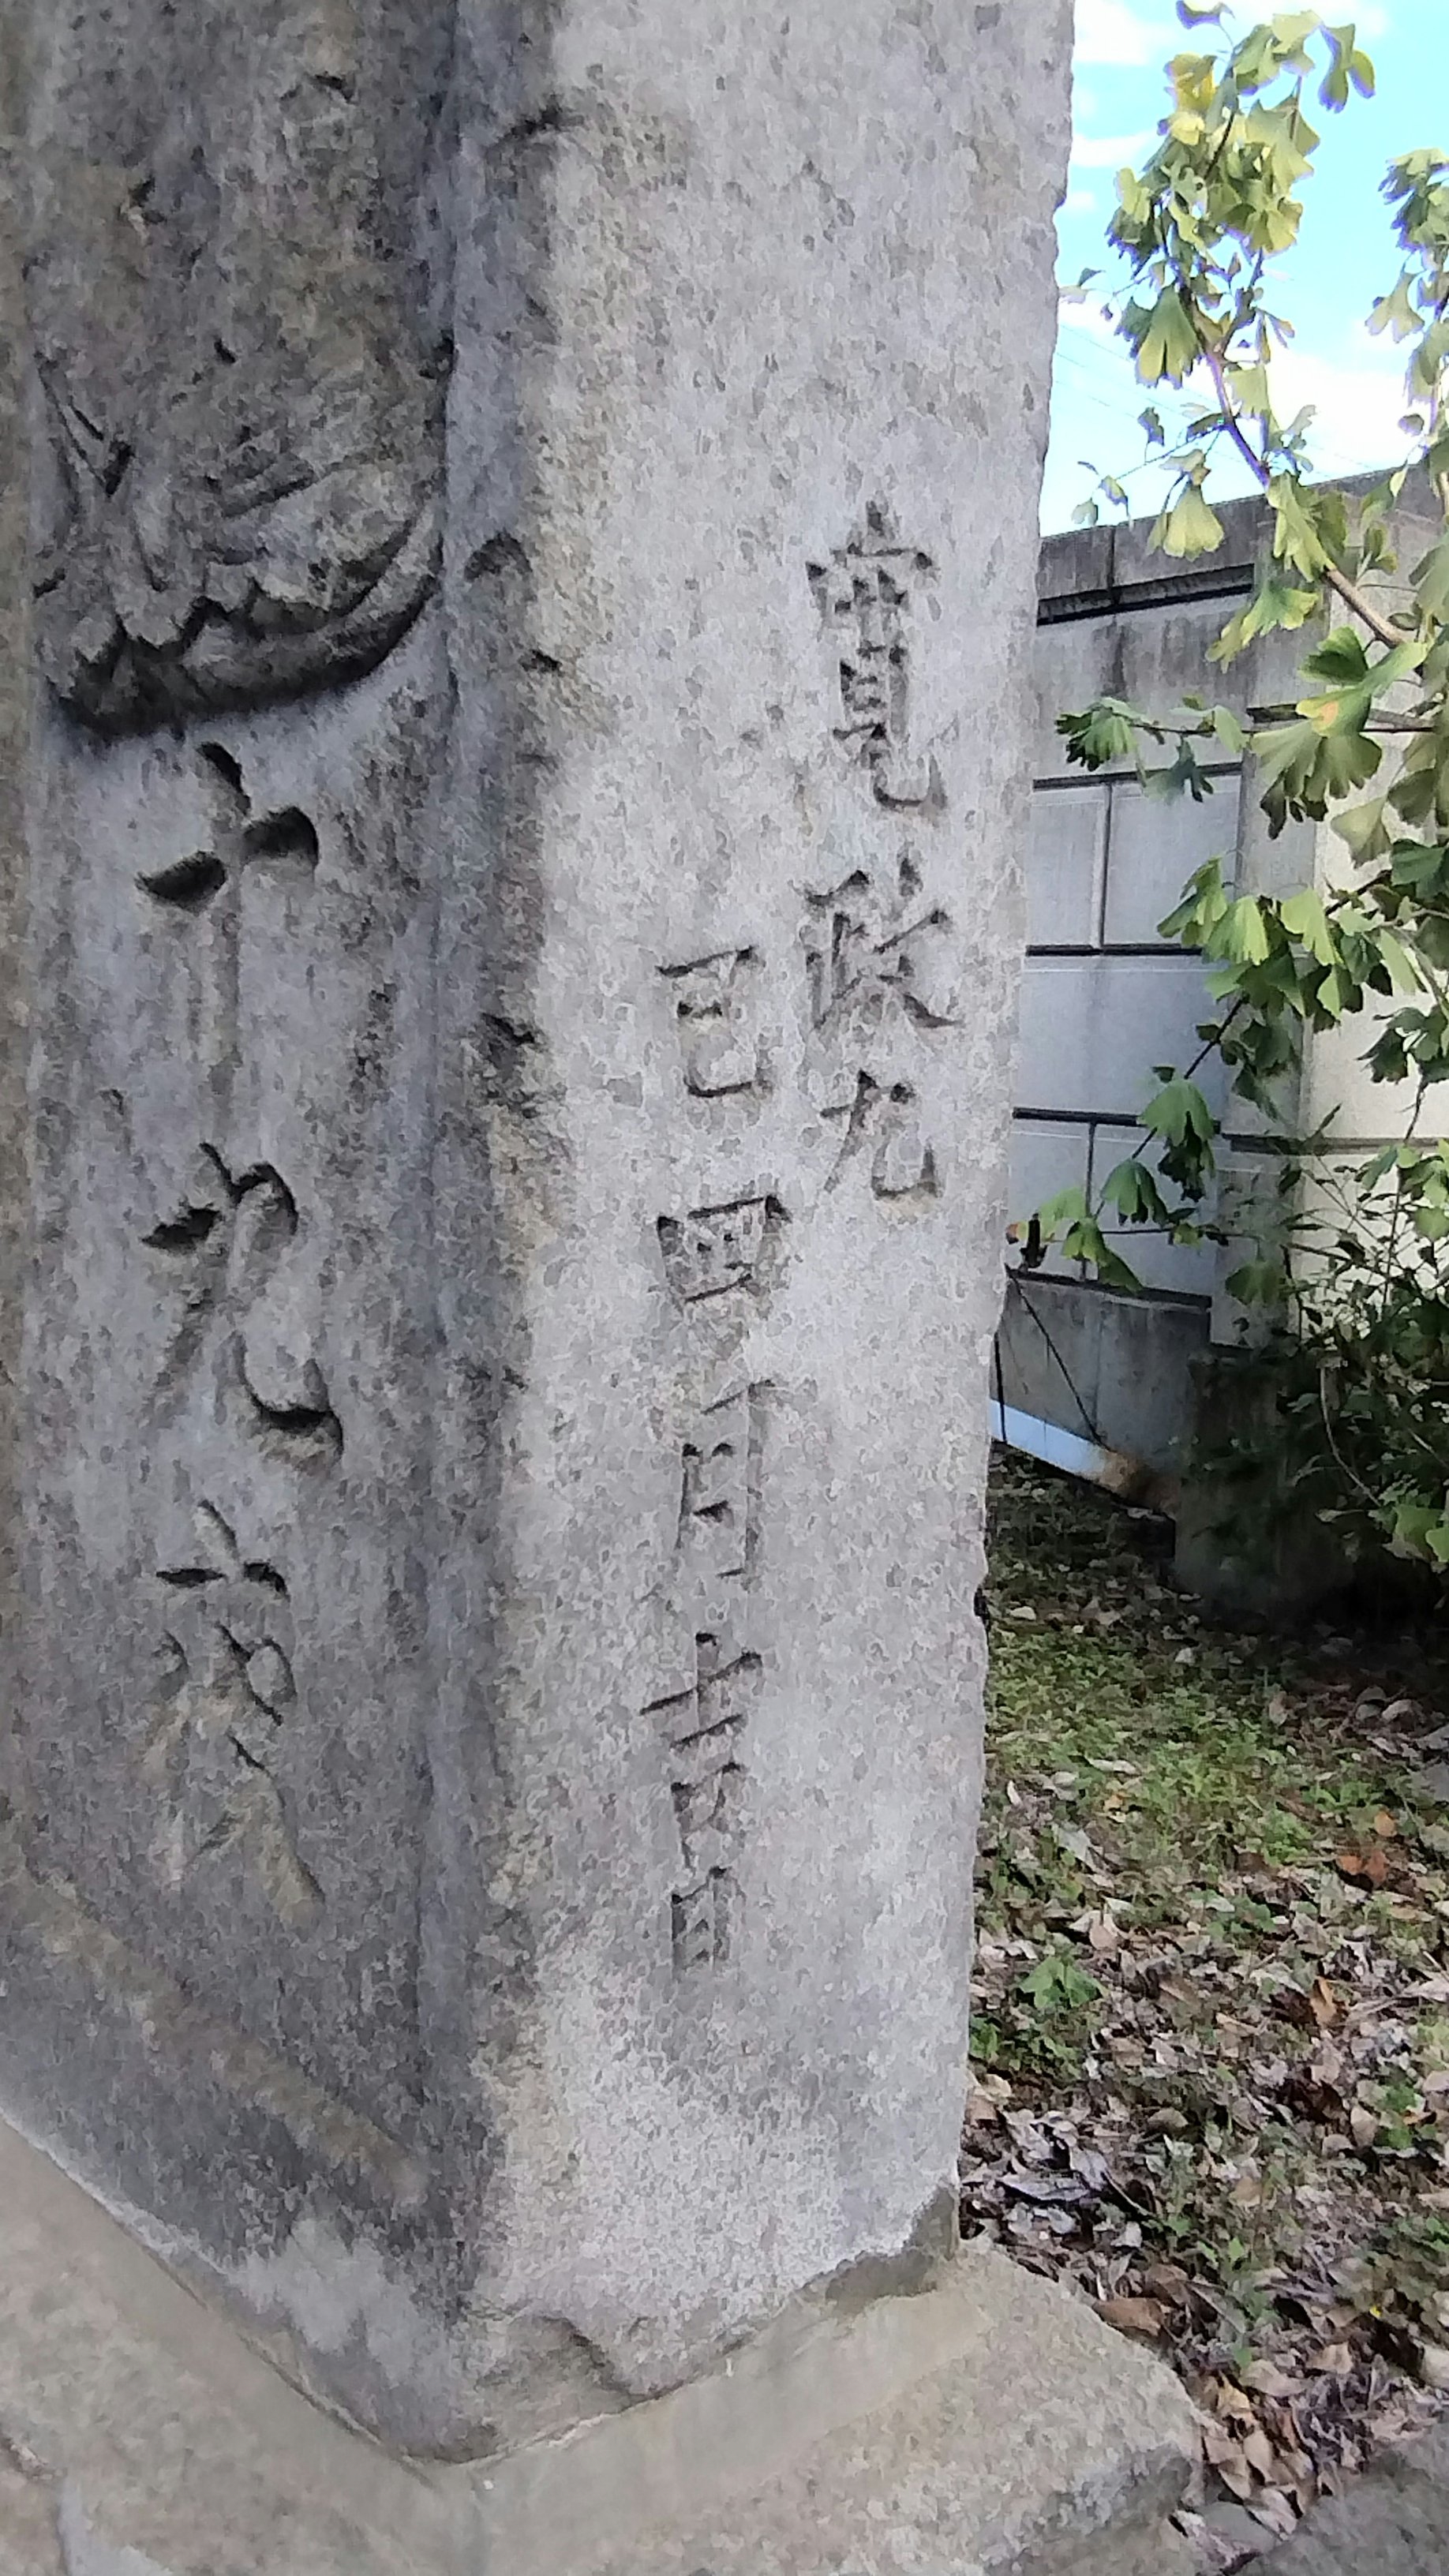 寛政九
巳四月吉日
十九夜